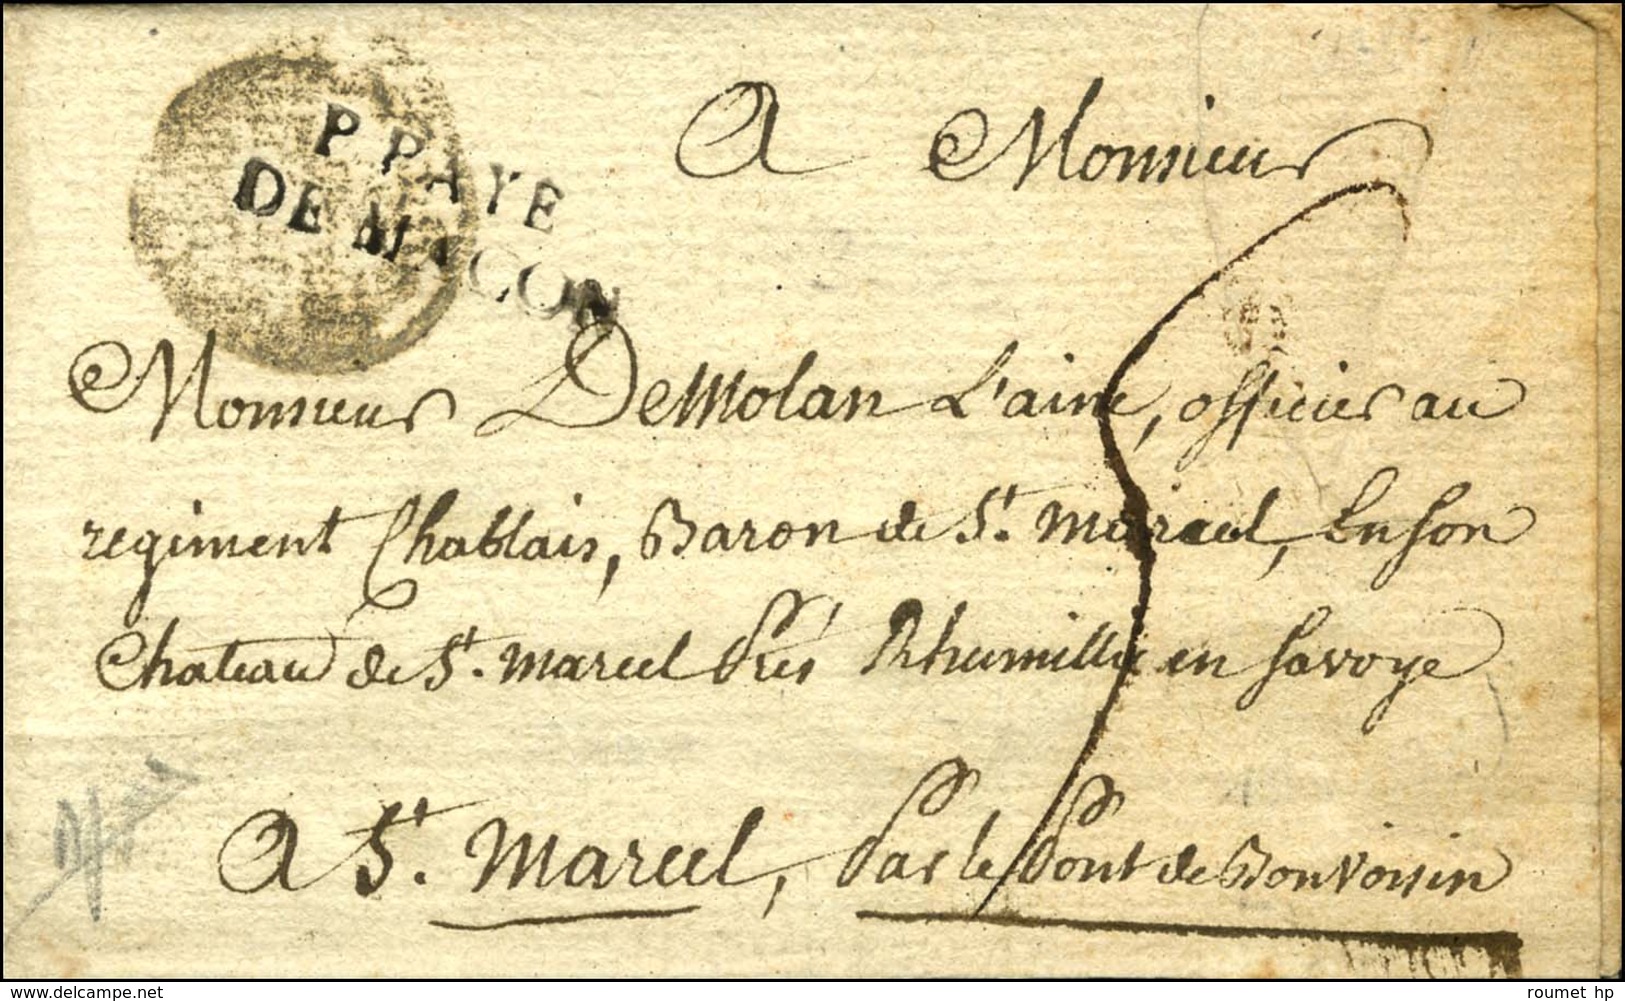 P. PAYE
DE MACON
A Monsieur
Monsieur De Molan L'ainé, officier au
regiment Chablais, Baron de St. Marcel, En son
Chateau de St. Marcel Prés Rhumilly en Savoye
A St. Marcel, Par le Pont de Bonvoisin
5
roumet hp
delcampe.net